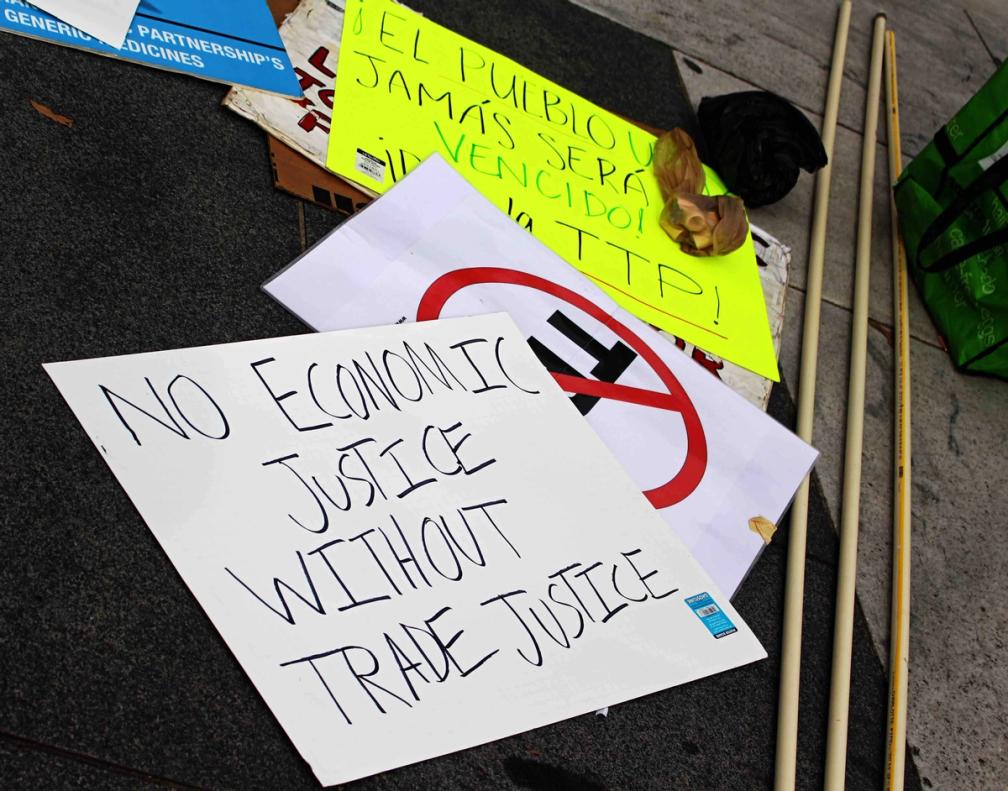 PARTNERSHIP'S
GENERIC MEDICINES
¡EL PUEBLO U
JAMÁS SERÁ
VENCIDO!
la TTP!
NO ECONOMIC
JUSTICE
WITHOUT
TRADE JUSTICE